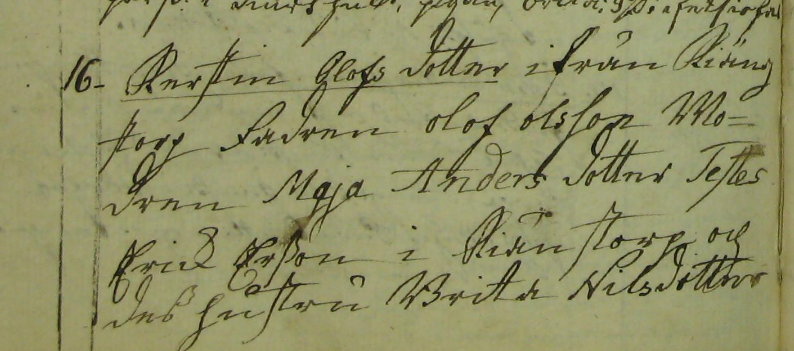 16- Kerstin Olofs dotter ifrån Kiäng
storp Fadren olof olsson Mo=
dren Maja Anders dotter Testes
Eric Ersson i Kiänstorp och
dess hustru Brita Nilsdotter